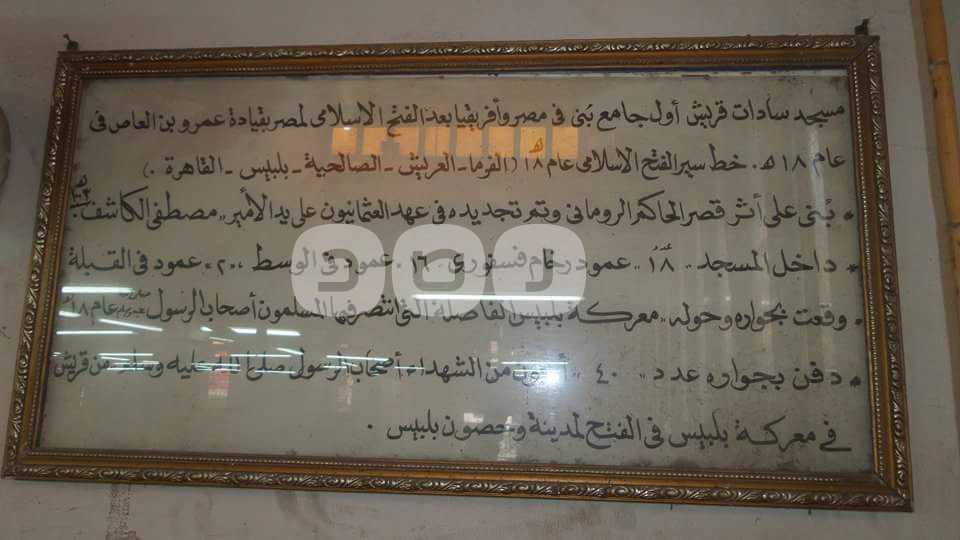 مسجد سادات قريش أول جامع بنى فى مصر وأفريقيا بعد الفتح الاسلامى لمصر بقيادة عمرو بن العاص فى
عام ١٨ هـ. خط سير الفتح الاسلامى عام ١٨ هـ (الفرما - العريش - الصالحية - بلبيس - القاهرة .)
* بُنى على أثر قصر الحاكم الرومانى وتم تجديده فى عهد العثمانيون على يد الأمير ,, مصطفى الكاشف
* داخل المسجد ,, ١٨ ,, عمود رخام فسفورى ,, ١٦ . عمود فى الوسط ,, ٢ ,, عمود فى القبلة
* وقعت بجواره وحوله ,, معركة بلبيس الفاصلة التى انتصر فيها المسلمون أصحاب الرسول عام ١٨ هـ
* دفن بجواره عدد ,, ٤٠ ,, من الشهداء أصحاب الرسول صلى الله عليه وسلم من قريش
فى معركة بلبيس فى الفتح لمدينة وحصون بلبيس .